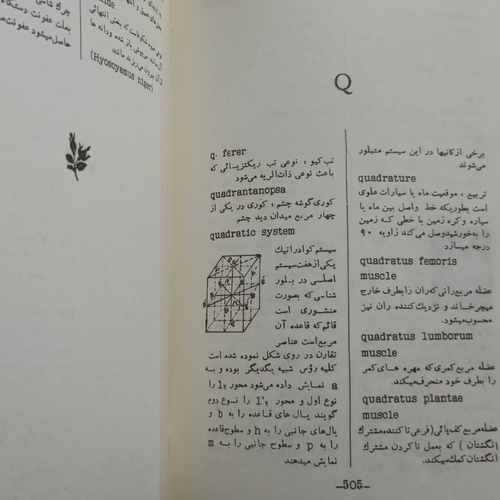 (Hyoscyamus niger)
Q
q. fever
تب‌کیو ، نوعی تب ریکتزیائی که
باعث نوعی ذات‌الریه می‌شود
quadrantanopsa
کوری‌گوشه چشم ، کوری در یکی از
چهار مربع میدان دید چشم
quadratic system
سیستم‌کوادراتیك
یکی‌ازهفت‌سیستم
اصلی در بلور
شناسی‌که بصورت
منشوری است
قائم‌که قاعده آن
مربع‌است عناصر
تقارن در روی شکل نموده شده است
کلیه رؤس شبیه یگدیگر بوده و به
a نمایش داده می‌شود محور ۲'l را
نوع اول و محور ۲"l را نوع دوم
گویند یال‌های قاعده را به b و
یال‌های جانبی را به h و سطوح‌قاعده
را به p و سطوح جانبی را به m
نمایش میدهند
برخی ازکانیها در این سیستم متبلور
می‌شوند
quadrature
تربیع ، موقعیت ماه یا سیارات علوی
است بطوریکه خط واصل بین ماه یا
سیاره وکره زمین با خطی که زمین
را به‌خورشیدوصل می‌کند زاویه ۹۰
درجه میسازد
quadratus femoris
muscle
عضله مربع‌رانی‌که‌ران رابطرف خارج
میچرخاند و نزدیك‌کننده ران نیز
محسوب‌میشود.
quadratus lumborum
muscle
عضله مربع‌کمری‌که مهره های‌کمر
را بطرف خود منحرف‌میکند.
quadratus plantae
muscle
عضله‌مربع‌کف‌پائی(فرعی‌تاکننده‌مشترك
انگشتان ) که بعمل تاکردن مشترك
انگشتان‌کمك‌میکند.
—505—